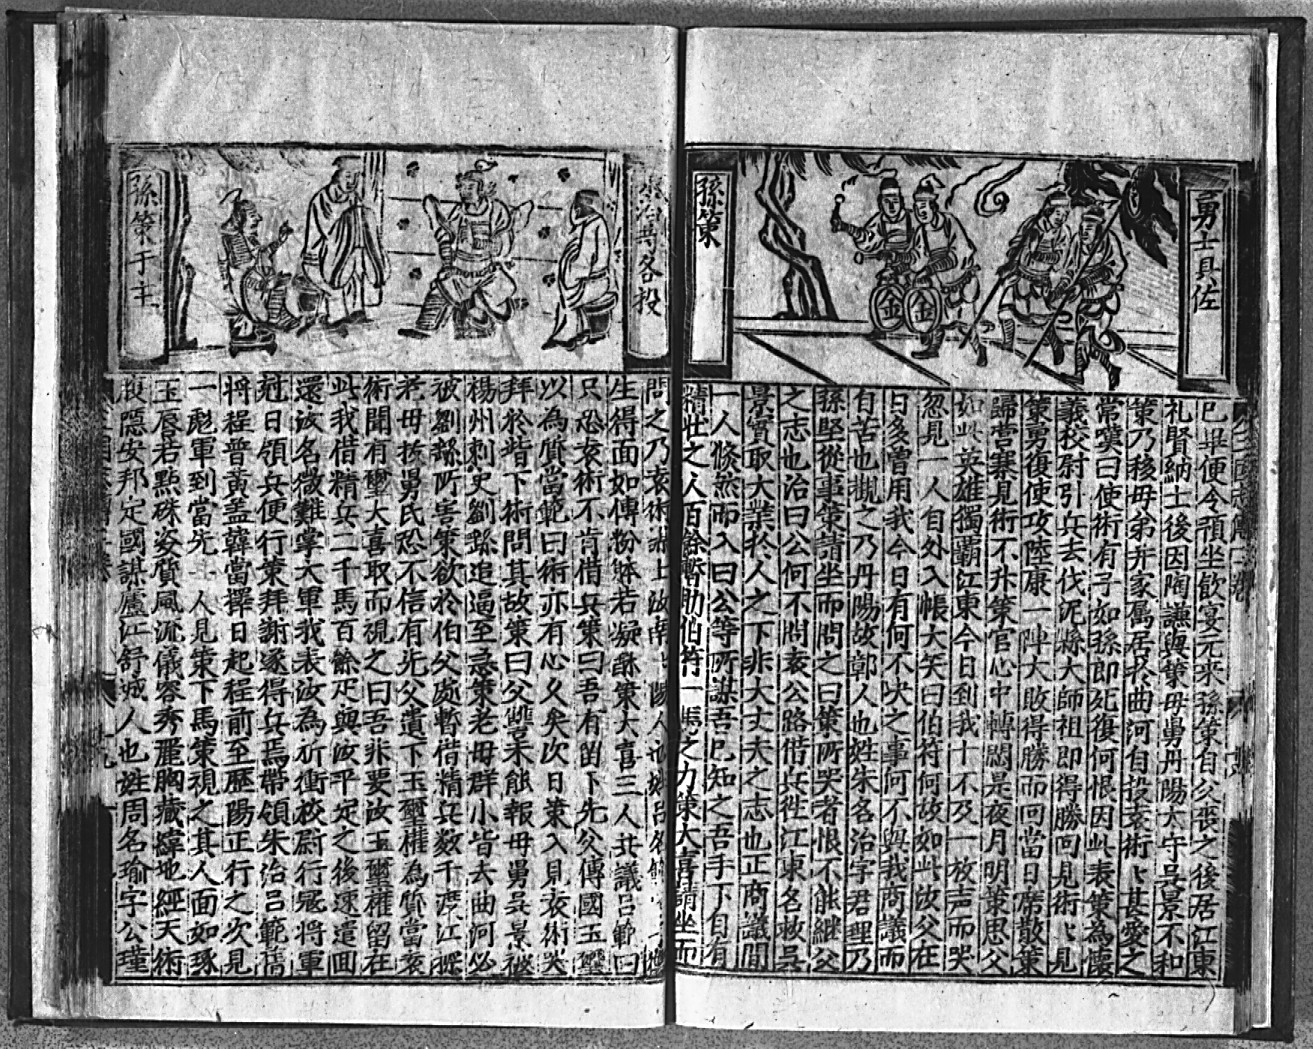 勇士具佐
孫策
巳畢便令預坐飲宴元來孫策自父喪之後居江東
礼賢納士後因陶謙與策母舅丹陽太守吳景不和
策乃移母弟并家属居於曲河自投袁術〻甚愛之
常嘆曰使術有子如孫郎死復何恨因此表策為懷
義校尉引兵去伐泥縣大師祖郎得勝回見術〻見
策勇復使攻陸康一陣大敗得勝而回當日席散策
歸營寨見術不升策官心中轉悶是夜月明策思父
如此英雄獨霸江東今日到我十不及一放声而哭
忽見一人自外入帳大笑曰伯符何故如此故父在
日多曾用我今日有何不决之事何不與我商議而
自苦也觀之乃丹陽故鄣人也姓朱名治字君理乃
孫堅從事策請坐而問之曰策所哭者恨不能継父
之志也治曰公何不問袁公路借兵徃江東名救吳
景實取大業於人之下非大丈夫之志也正商議間
一人倏然而入曰公等所謀吾已知之吾手下自有
精壮之人百餘暫助伯符一馬之力策大喜請坐而
朱治等各投
孫策于主
問之乃袁術
生得面如傅粉躰若凝酥策大喜三人共議吕範曰
只恐袁術不肯借兵策曰吾有留下先父傳國玉璽
以為質當範曰術亦有心久矣次日策入見袁術哭
拜於堦下術問其故策曰父讐未能報母舅吳景被
楊州刺史劉繇追逼至急策老母群小皆去曲河必
被劉繇所害策欲於伯父處暫借精兵数千渡江探
老母扶舅氏恐不信有先父遺下玉璽權為質當袁
術聞有璽大喜取而視之曰吾非要汝玉璽權留在
此我借精兵二千馬百餘疋與汝平定之後速遣回
還汝名微難掌大軍我表汝為折衝校尉行冦將軍
尅日領兵便行策拜謝遂得兵馬帶領朱治吕範舊
將程普黃盖韓當擇日起程前至歷陽正行之次見
一彪軍到當先一人見策下馬策視之其人面如琢
玉唇若點硃姿質風流儀容秀麗胸藏緯地經天術
腹隱安邦定國謀廬江舒城人也姓周名瑜字公瑾